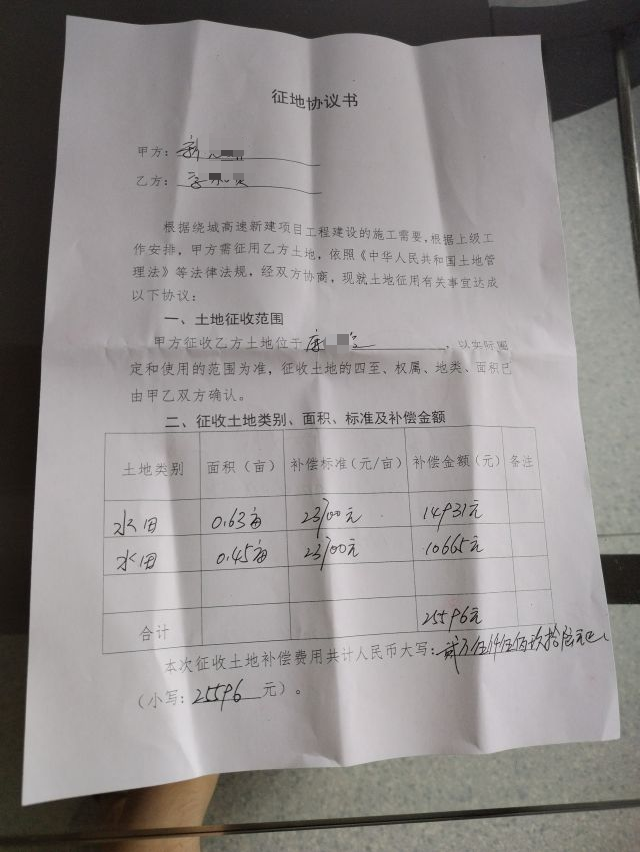 征地协议书
甲方：
乙方：
根据绕城高速新建项目工程建设的施工需要，根据上级工
作安排，甲方需征用乙方土地，依照《中华人民共和国土地管
理法》等法律法规，经双方协商，现就土地征用有关事宜达成
以下协议：
一、土地征收范围
甲方征收乙方土地位于，以实际圈
定和使用的范围为准，征收土地的四至、权属、地类、面积已
由甲乙双方确认。
二、征收土地类别、面积、标准及补偿金额
土地类别 面积（亩） 补偿标准（元/亩） 补偿金额（元） 备注
水田 0.63亩 23700元 14931元
水田 0.45亩 23700元 10665元
合计 25596元
本次征收土地补偿费用共计人民币大写：贰万伍仟伍佰玖拾陆元
（小写：25596元）。